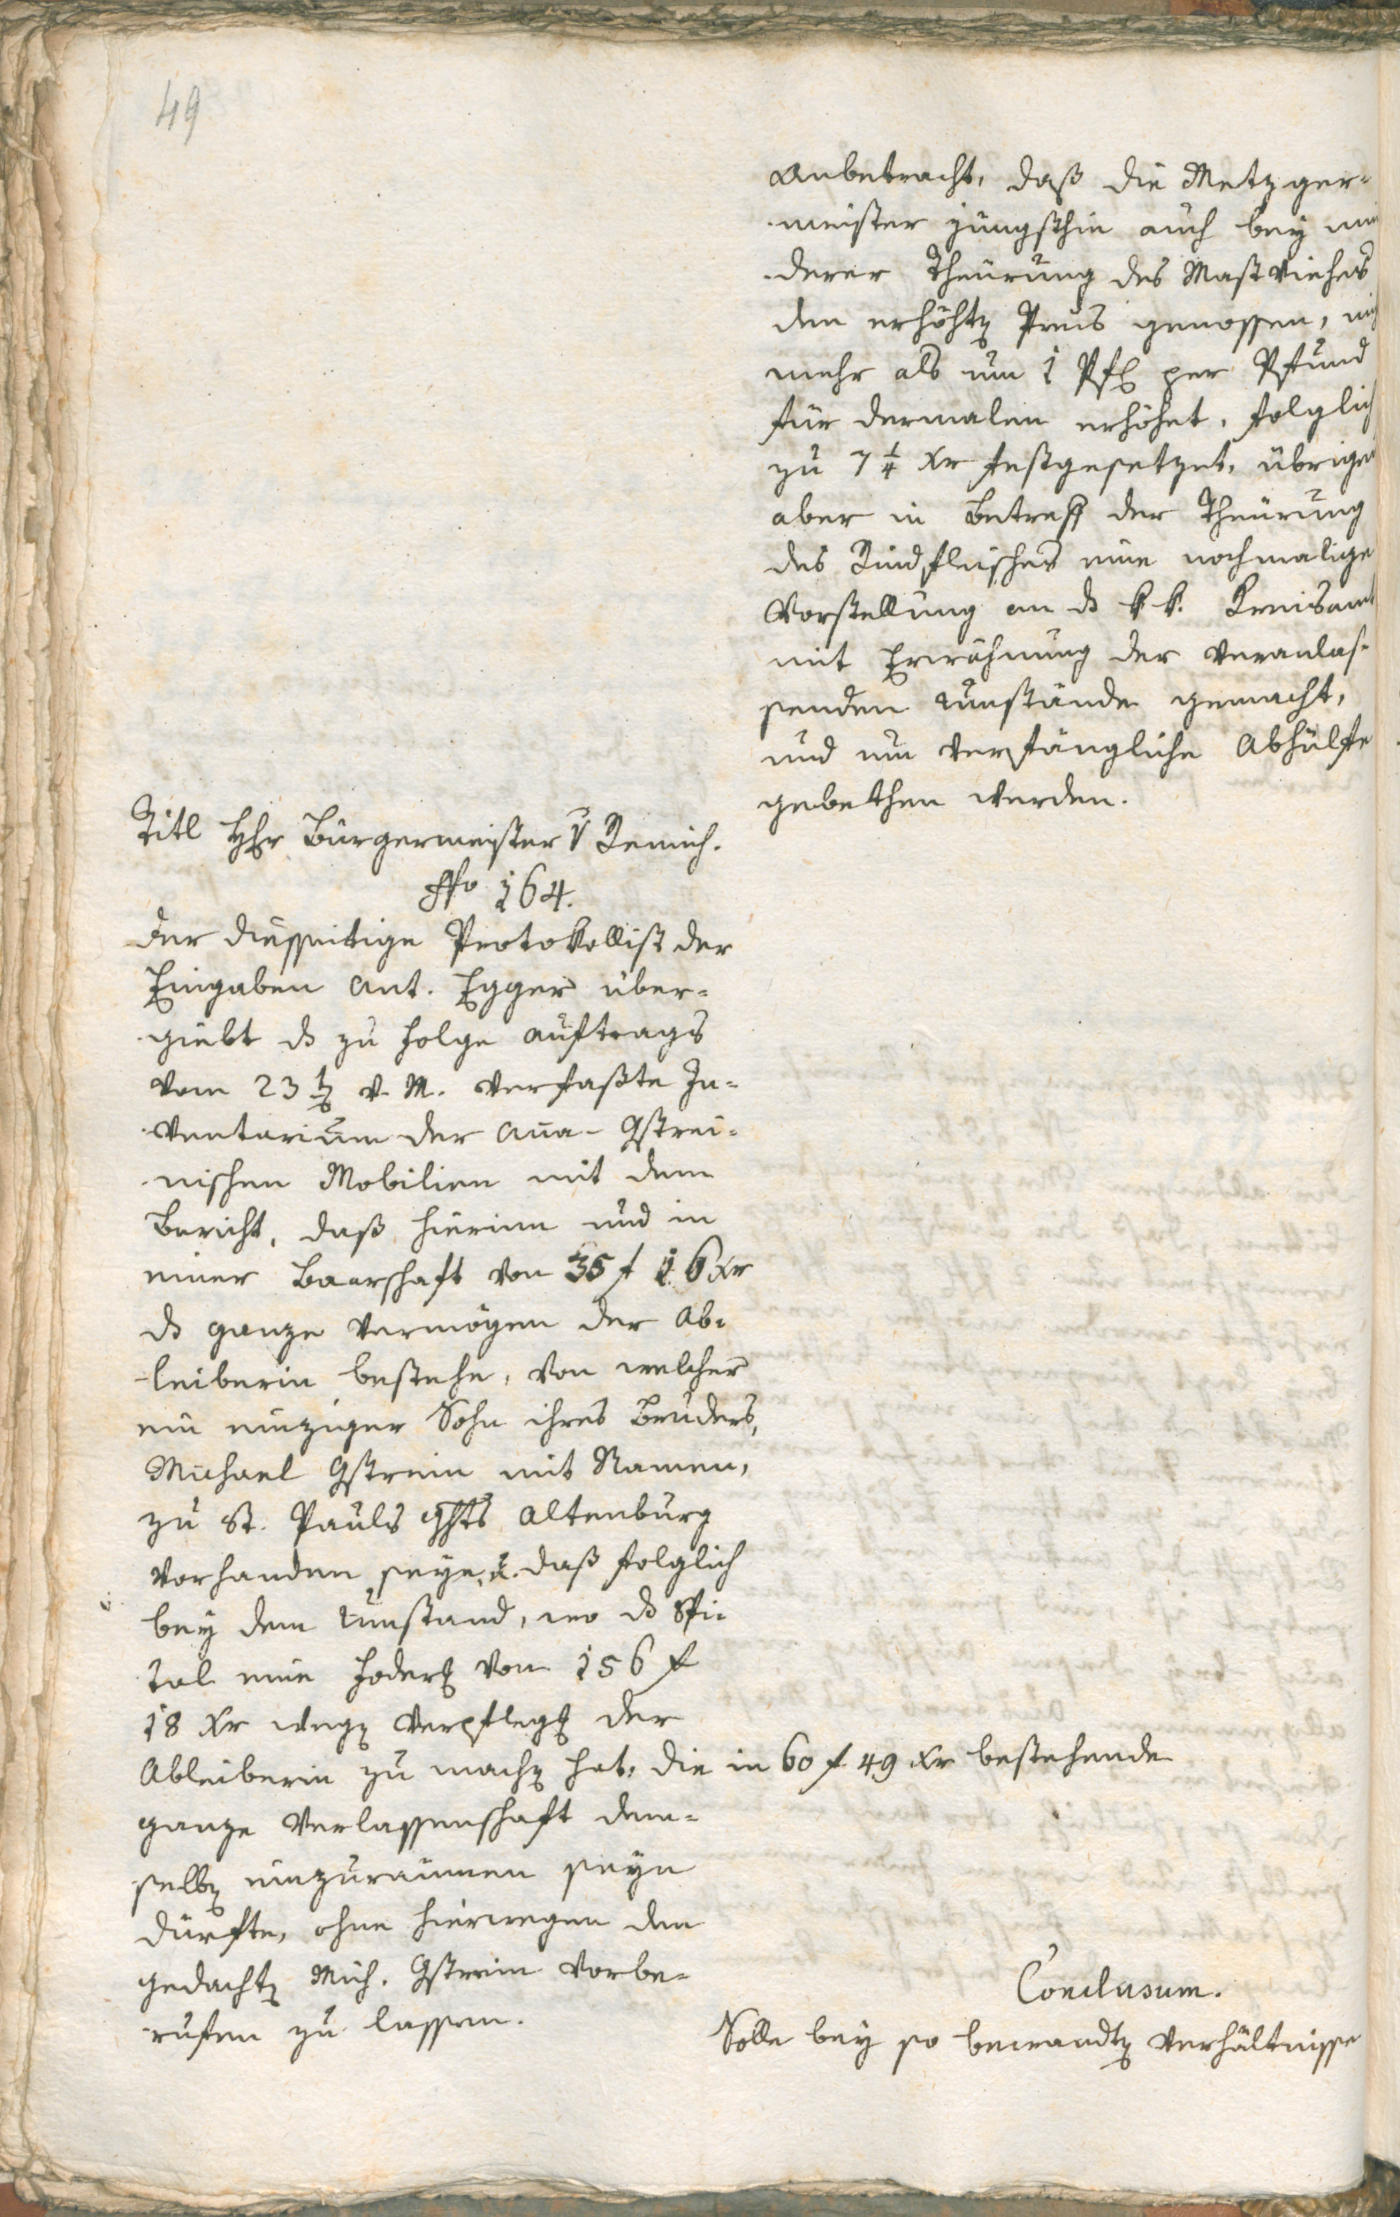 49
Anbetracht, daß die Metzger-
meister jüngsthin auch bey min
derer Theürung des Mastviehes
den erhöhten Preis genossen, nicht
mehr als um 1 Pf per Pfund
für dermalen erhöhet, folglich
zu 7 1/4 Xr festgesetzet, übrigens
aber in Betreff der Theürung
des Rindfleisches eine nochmalige
Vorstellung an ds k. k. Kreisamt
mit Erwähnung der veranlas-
senden Umstände gemacht,
und um verfängliche Abhülfe
gebethen werden.
Titl HHr Bürgermeister v Remich.
Nro 164.
Der diesseitige Protokollist der
Eingaben Ant. Egger über-
giebt ds zu Folge Auftrags
vom 23 v. M. verfaßte In-
ventarium der Anna- Gstrei-
nischen Mobilien mit dem
Bericht, daß hierinn und in
einer Baarschaft von 35 f 16 Xr
ds ganze Vermögen der Ab-
leiberin bestehe, von welcher
ein einziger Sohn ihres Bruders,
Michael Gstrein mit Namen,
zu St. Pauls Ghts Altenburg
vorhanden seye, u. daß folglich
bey dem Umstand, wo ds Spi-
tal eine Foderg von 156 f
18 Xr wegen Verpflegg der
Ableiberin zu machen hat, die in 60 f 49 Xr bestehende
ganze Verlassenschaft dem-
selben einzuräumen seyn
dürfte, ohne hierwegen den
gedachten Mich. Gstrein vorbe-
rufen zu lassen.
Conclusum.
Solle bey so bewandten Verhältnisse